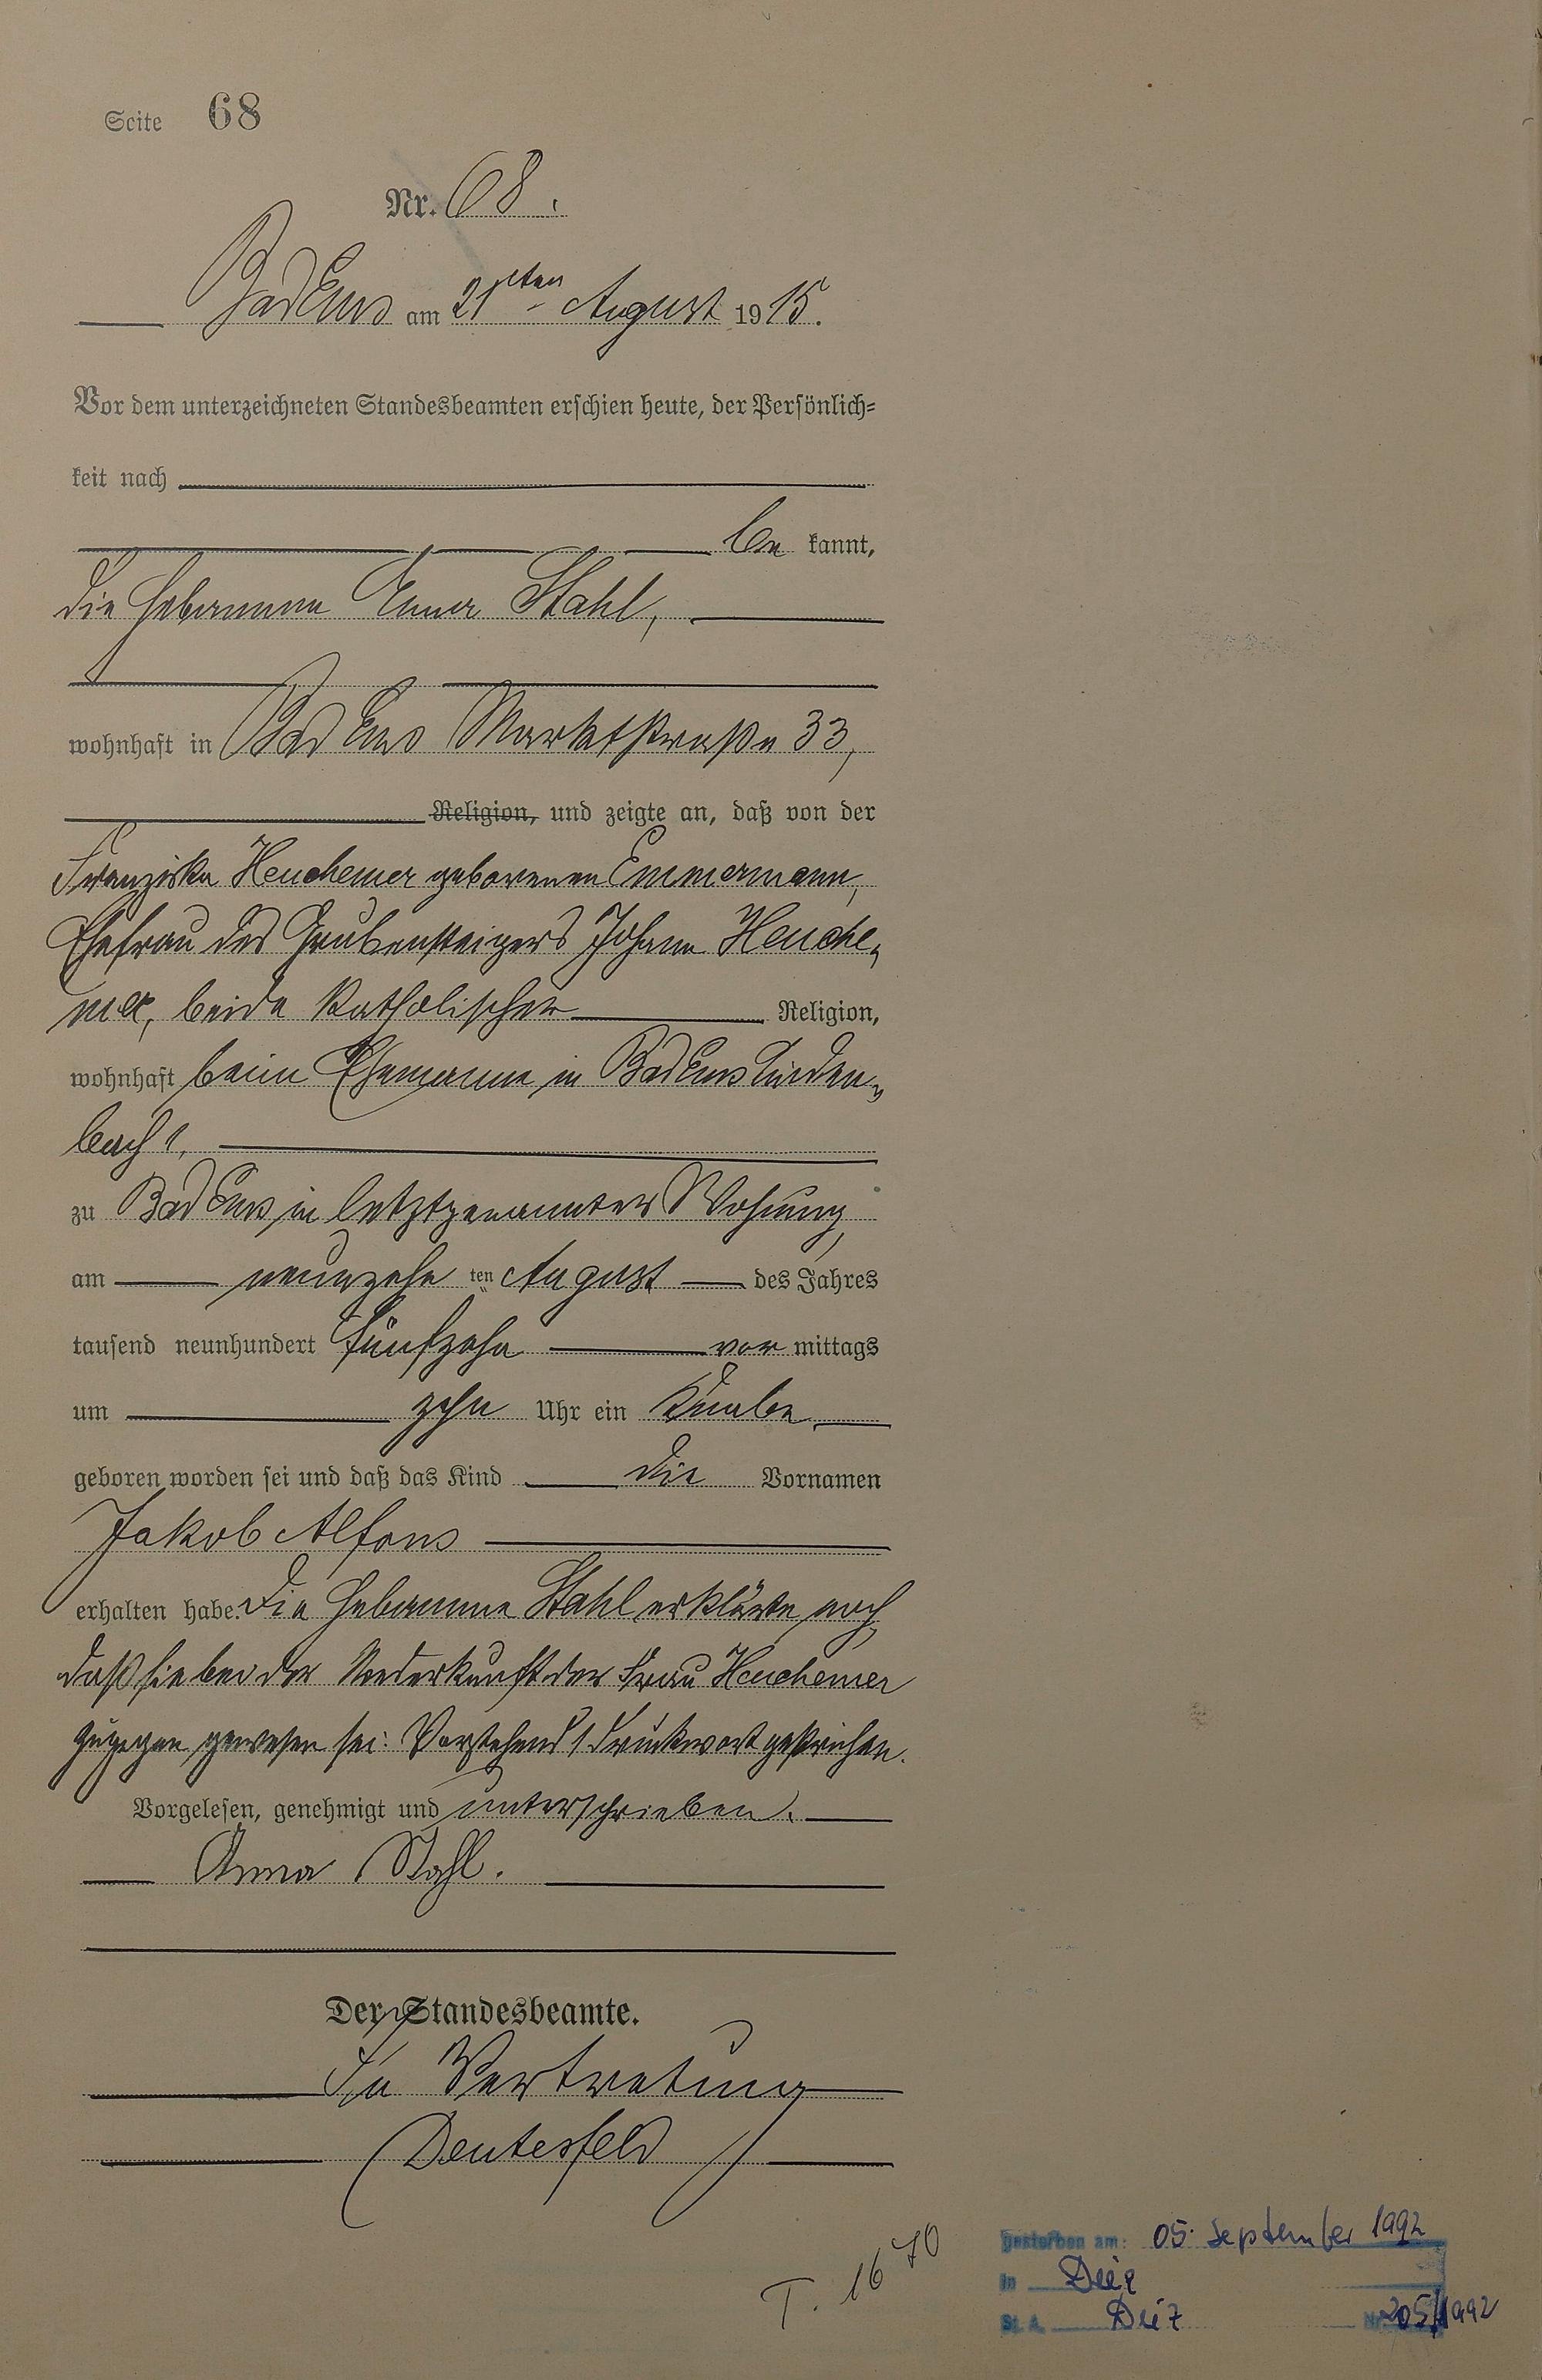 Seite 68
Nr. 68.
Bad Ems am 21sten August 1915.
Vor dem unterzeichneten Standesbeamten erschien heute, der Persönlich=
keit nach
be kannt,
die Hebamme Anna Stahl,
wohnhaft in Bad Ems Marktstraße 33,
Religion, und zeigte an, daß von der
Franziska Heuchemer geborenen Emmermann,
Ehefrau des Grubensteigers Johann Heuche-
mer, beide katholischer Religion,
wohnhaft beim Ehemanne in Bad Ems Linden-
bach 1,
zu Bad Ems in letztgenannter Wohnung,
am neunzehn ten August des Jahres
tausend neunhundert fünfzehn vor mittags
um zehn Uhr ein Knabe
geboren worden sei und daß das Kind die Vornamen
Jakob Alfons
erhalten habe. Die Hebamme Stahl erklärte noch,
daß sie bei der Niederkunft der Frau Heuchemer
zugegen gewesen sei. Vorstehend 1 Druckwort gestrichen.
Vorgelesen, genehmigt und unterschrieben.
Anna Stahl.
Der Standesbeamte.
In Vertretung
Deutesfeld
T. 16 70
gestorben am: 05. September 1992
in Diez
St. A. Diez Nr. 205/1992